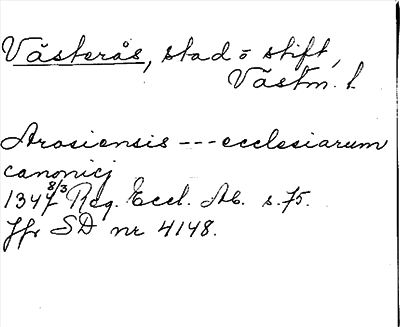 Västerås, stad o stift,
Västm. l.
Arosiensis --- ecclesiarum
canonicj
1347 8/3 Reg. Eccl. Ab. s. 75.
Jfr SD nr 4148.